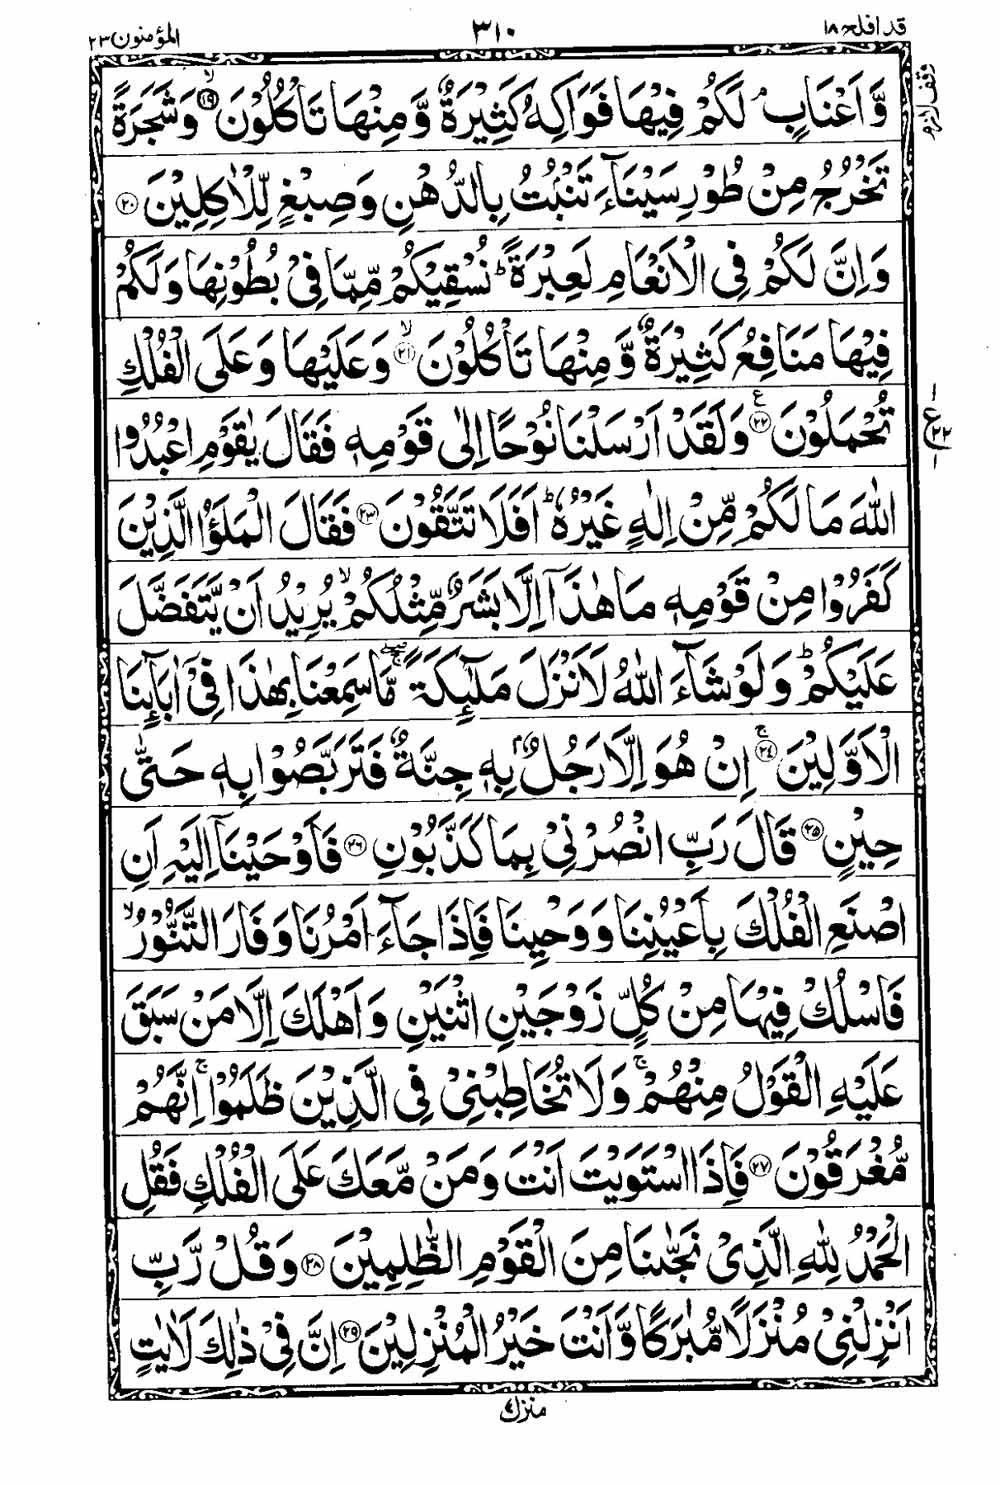 قد افلح ١٨
٣١٠
المؤمنون ٢٣
وقف لازم
وَّاَعْنَابٍ ۘ لَكُمْ فِيْهَا فَوَاكِهُ كَثِيْرَةٌ وَّمِنْهَا تَاْكُلُوْنَ ۙ﴿۱۹﴾ وَشَجَرَةً
تَخْرُجُ مِنْ طُوْرِ سَيْنَآءَ تَنْۢبُتُ بِالدُّهْنِ وَصِبْغٍ لِّلْاٰكِلِيْنَ ﴿۲۰﴾
وَاِنَّ لَكُمْ فِي الْاَنْعَامِ لَعِبْرَةً ؕ نُسْقِيْكُمْ مِّمَّا فِيْ بُطُوْنِهَا وَلَكُمْ
فِيْهَا مَنَافِعُ كَثِيْرَةٌ وَّمِنْهَا تَاْكُلُوْنَ ۙ﴿۲۱﴾ وَعَلَيْهَا وَعَلَى الْفُلْكِ
تُحْمَلُوْنَ ﴿۲۲﴾ؑ وَلَقَدْ اَرْسَلْنَا نُوْحًا اِلٰى قَوْمِهٖ فَقَالَ يٰقَوْمِ اعْبُدُوا
ع ٢٢
اللّٰهَ مَا لَكُمْ مِّنْ اِلٰهٍ غَيْرُهٗ ؕ اَفَلَا تَتَّقُوْنَ ﴿۲۳﴾ فَقَالَ الْمَلَؤُا الَّذِيْنَ
كَفَرُوْا مِنْ قَوْمِهٖ مَا هٰذَاۤ اِلَّا بَشَرٌ مِّثْلُكُمْ ۙ يُرِيْدُ اَنْ يَّتَفَضَّلَ
عَلَيْكُمْ ؕ وَلَوْ شَآءَ اللّٰهُ لَاَنْزَلَ مَلٰٓئِكَةً ۖۚ مَّا سَمِعْنَا بِهٰذَا فِيْۤ اٰبَآئِنَا
الْاَوَّلِيْنَ ۚ﴿۲۴﴾ اِنْ هُوَ اِلَّا رَجُلٌۢ بِهٖ جِنَّةٌ فَتَرَبَّصُوْا بِهٖ حَتّٰى
حِيْنٍ ﴿۲۵﴾ قَالَ رَبِّ انْصُرْنِيْ بِمَا كَذَّبُوْنِ ﴿۲۶﴾ فَاَوْحَيْنَاۤ اِلَيْهِ اَنِ
اصْنَعِ الْفُلْكَ بِاَعْيُنِنَا وَوَحْيِنَا فَاِذَا جَآءَ اَمْرُنَا وَفَارَ التَّنُّوْرُ ۙ
فَاسْلُكْ فِيْهَا مِنْ كُلٍّ زَوْجَيْنِ اثْنَيْنِ وَاَهْلَكَ اِلَّا مَنْ سَبَقَ
عَلَيْهِ الْقَوْلُ مِنْهُمْ ۚ وَلَا تُخَاطِبْنِيْ فِي الَّذِيْنَ ظَلَمُوْا ۚ اِنَّهُمْ
مُّغْرَقُوْنَ ﴿۲۷﴾ فَاِذَا اسْتَوَيْتَ اَنْتَ وَمَنْ مَّعَكَ عَلَى الْفُلْكِ فَقُلِ
الْحَمْدُ لِلّٰهِ الَّذِيْ نَجّٰىنَا مِنَ الْقَوْمِ الظّٰلِمِيْنَ ﴿۲۸﴾ وَقُلْ رَّبِّ
اَنْزِلْنِيْ مُنْزَلًا مُّبٰرَكًا وَّاَنْتَ خَيْرُ الْمُنْزِلِيْنَ ﴿۲۹﴾ اِنَّ فِيْ ذٰلِكَ لَاٰيٰتٍ
منزل ٤